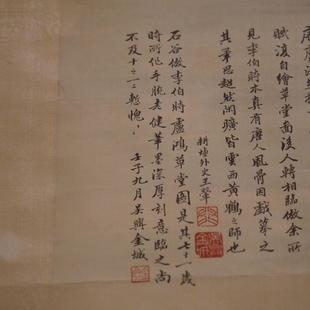 賦後自繪草堂圖後人轉相臨倣余所
見李伯時本真有唐人風骨因戲摹之
其筆思超然閒曠皆雲西黃鶴之師也
耕煙外史王翬
石谷倣李伯時盧鴻草堂圖是其七十一歲
時所作手腕老健筆墨深厚刻意臨之尚
不及十之一二輒愧〻
壬子九月吴興金城